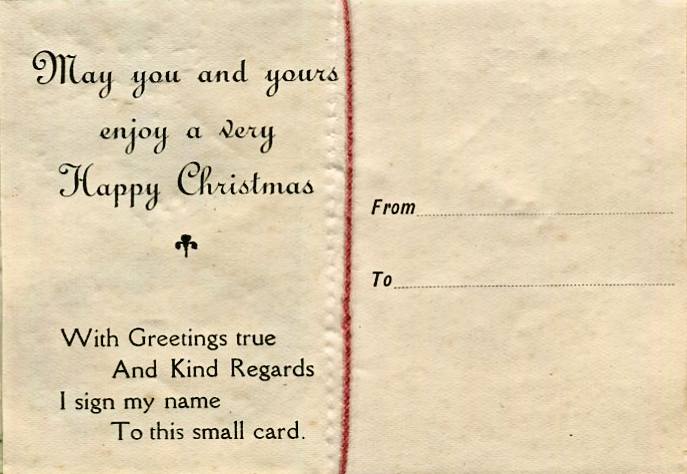 May you and yours
enjoy a very
Happy Christmas
With Greetings true
And Kind Regards
I sign my name
To this small card.
From
To